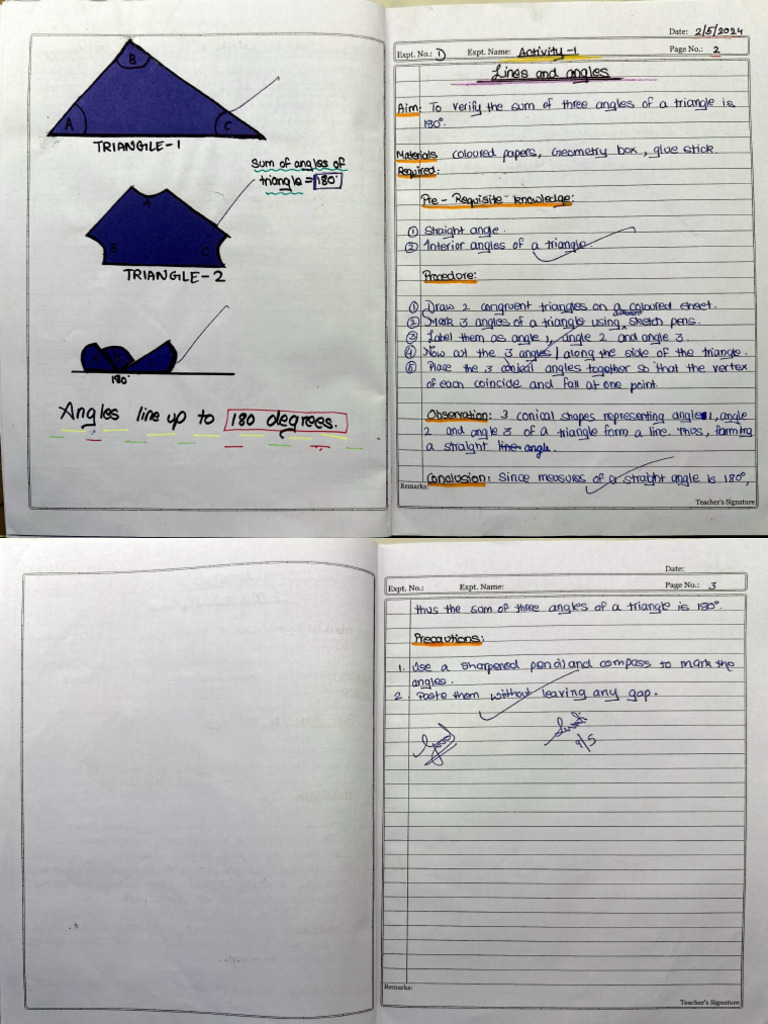 B
A
C
TRIANGLE-1
Sum of angles of
triangle = 180°
A
B
C
TRIANGLE-2
A B C
180°
Angles line up to 180 degrees.
Date: 2/5/2024
Expt. No.: 1 Expt. Name: Activity-1 Page No.: 2
Lines and angles
Aim: To verify the sum of three angles of a triangle is
180°.
Materials coloured papers, Geometry box, glue stick.
Required:
Pre-Requisite knowledge:
① Straight angle.
② Interior angles of a triangle.
Procedure:
① Draw 2 congruent triangles on a coloured sheet.
② Mark 3 angles of a triangle using sketch pens.
③ Label them as angle 1, angle 2 and angle 3.
④ Now cut the 3 angles along the side of the triangle.
⑤ Place the 3 conical angles together so that the vertex
of each coincide and fall at one point.
Observation: 3 conical shapes representing angle 1, angle
2 and angle 3 of a triangle form a line. Thus, forming
a straight line angle.
Conclusion: Since measures of a straight angle is 180°,
Remarks:
Teacher's Signature
Date:
Expt. No.: Expt. Name: Page No.: 3
thus the sum of three angles of a triangle is 180°.
Precautions:
1. Use a sharpened pencil and compass to mark the
angles.
2. Paste them without leaving any gap.
Good
9/5
Remarks:
Teacher's Signature